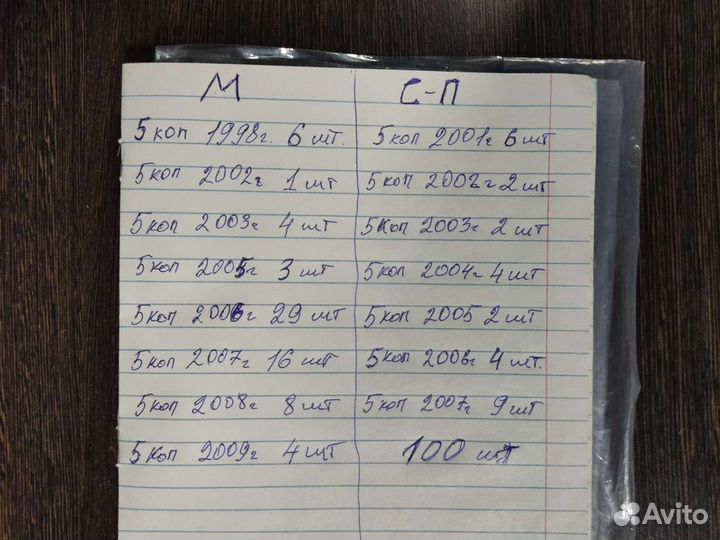 М
С-П
5 коп 1998г. 6 шт.
5 коп 2001г 6 шт
5 коп 2002г 1 шт
5 коп 2002 г 2 шт
5 коп 2003г 4 шт
5 коп 2003г 2 шт
5 коп 2005г 3 шт
5 коп 2004г 4 шт
5 коп 2006г 29 шт
5 коп 2005 2 шт
5 коп 2007г 16 шт
5 коп 2006г 4 шт.
5 коп 2008г 8 шт
5 коп 2007г 9 шт
5 коп 2009г 4 шт
100 шт
Avito